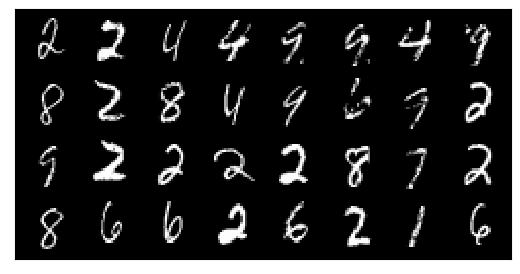 2 2 4 4 9 9 4 9
8 2 8 4 9 6 9 2
9 2 2 2 2 8 7 2
8 6 6 2 6 2 1 6